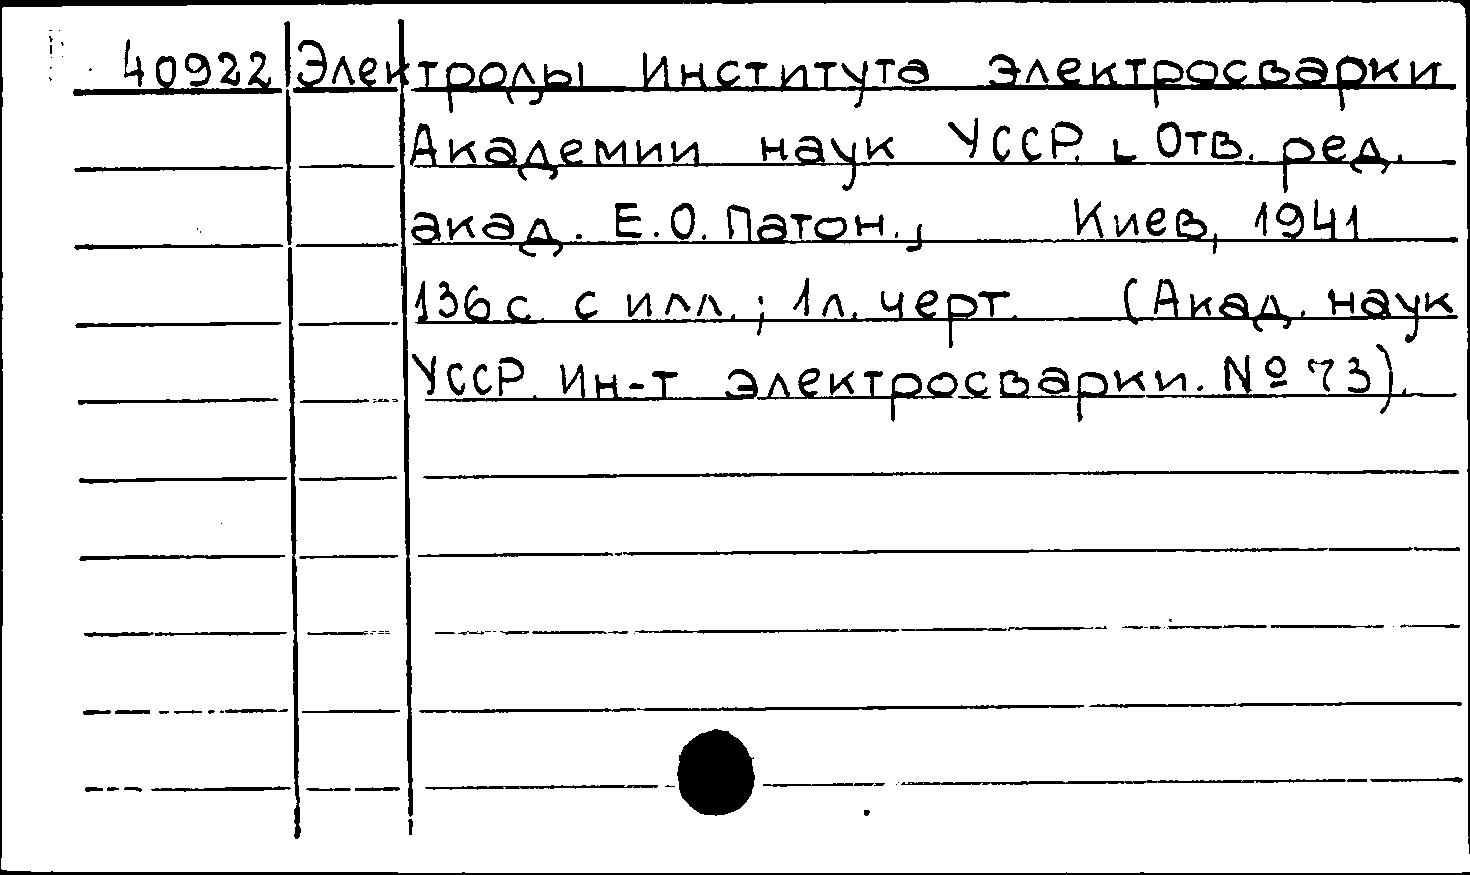 40922 Электроды Института электросварки
Академии наук УССР. [Отв. ред.
акад. Е.О. Патон.], Киев, 1941
136 с. с илл.; 1 л. черт. (Акад. наук
УССР. Ин-т электросварки. № 73).